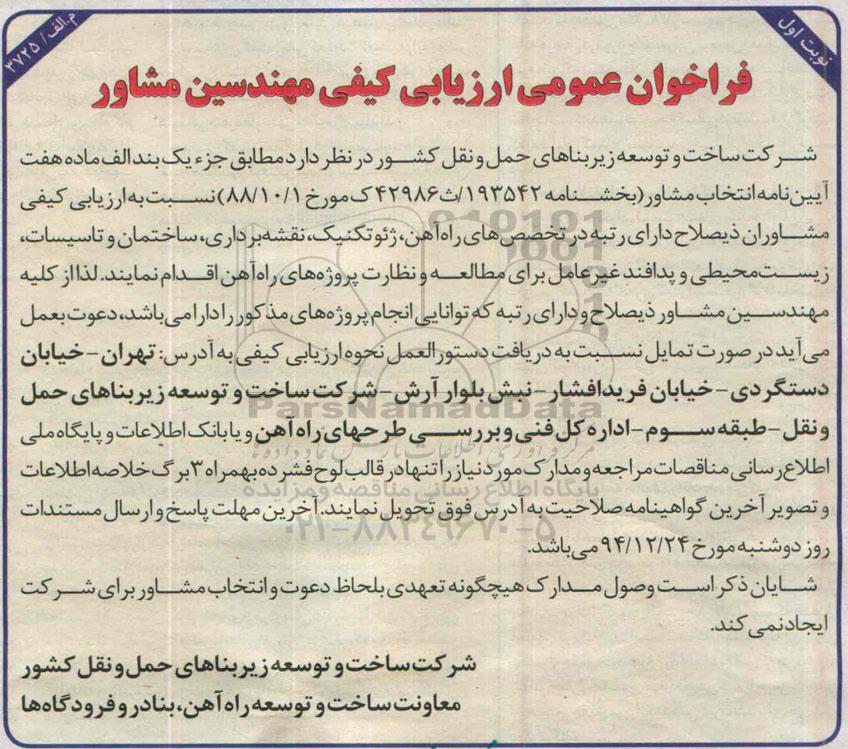 نوبت اول
م.الف/۳۷۲۵
فراخوان عمومی ارزیابی کیفی مهندسین مشاور
شرکت ساخت و توسعه زیربناهای حمل و نقل کشور در نظر دارد مطابق جزء یک بند الف ماده هفت
آیین‌نامه انتخاب مشاور (بخشنامه ۱۹۳۵۴۲/ث۴۲۹۸۶ ک مورخ ۸۸/۱۰/۱) نسبت به ارزیابی کیفی
مشاوران ذیصلاح دارای رتبه در تخصص‌های راه‌آهن، ژئوتکنیک، نقشه‌برداری، ساختمان و تاسیسات،
زیست‌محیطی و پدافند غیرعامل برای مطالعه و نظارت پروژه‌های راه‌آهن اقدام نمایند. لذا از کلیه
مهندسین مشاور ذیصلاح و دارای رتبه که توانایی انجام پروژه‌های مذکور را دارا می‌باشد، دعوت بعمل
می‌آید در صورت تمایل نسبت به دریافت دستورالعمل نحوه ارزیابی کیفی به آدرس: تهران - خیابان
دستگردی - خیابان فرید افشار - نبش بلوار آرش - شرکت ساخت و توسعه زیربناهای حمل
و نقل - طبقه سوم - اداره کل فنی و بررسی طرحهای راه‌آهن و یا بانک اطلاعات و پایگاه ملی
اطلاع‌رسانی مناقصات مراجعه و مدارک مورد نیاز را تنها در قالب لوح فشرده بهمراه ۳ برگ خلاصه اطلاعات
و تصویر آخرین گواهینامه صلاحیت به آدرس فوق تحویل نمایند. آخرین مهلت پاسخ و ارسال مستندات
روز دوشنبه مورخ ۹۴/۱۲/۲۴ می‌باشد.
شایان ذکر است وصول مدارک هیچگونه تعهدی بلحاظ دعوت و انتخاب مشاور برای شرکت
ایجاد نمی‌کند.
شرکت ساخت و توسعه زیربناهای حمل و نقل کشور
معاونت ساخت و توسعه راه‌آهن، بنادر و فرودگاه‌ها
ParsNamadData
پایگاه اطلاع رسانی مناقصه و مزایده
۰۲۱-۸۸۳۴۹۶۷۰-۵